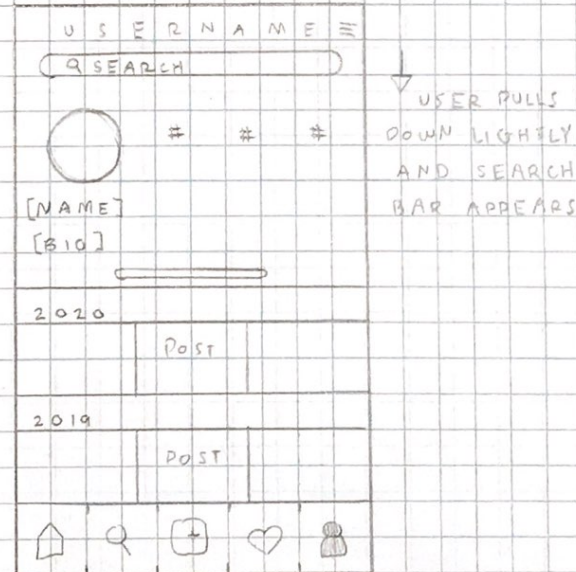 USERNAME
SEARCH
# # #
[NAME]
[BIO]
2020
POST
2019
POST
USER PULLS
DOWN LIGHTLY
AND SEARCH
BAR APPEARS